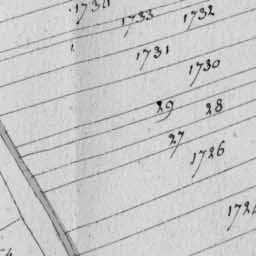 1733
1732
1731
1730
29
28
27
1726